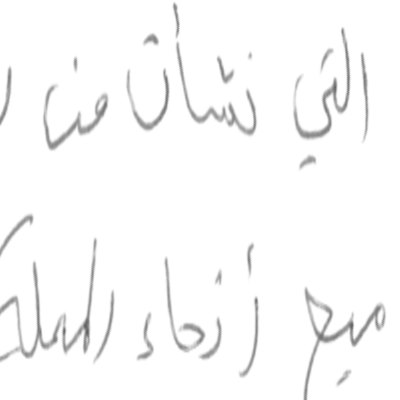 التي نشأت من
ميع أنحاء المملك